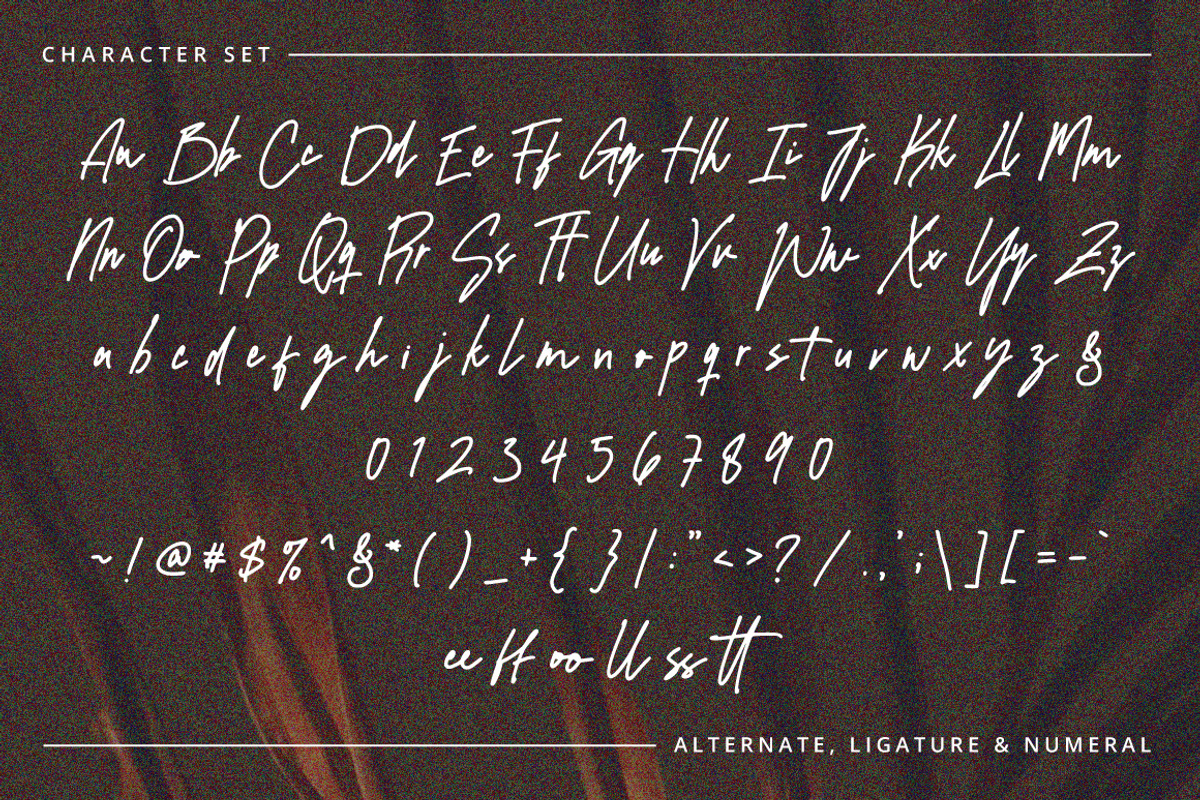 CHARACTER SET
Aa Bb Cc Dd Ee Ff Gg Hh Ii Jj Kk Ll Mm
Nn Oo Pp Qq Rr Ss Tt Uu Vv Ww Xx Yy Zz
a b c d e f g h i j k l m n o p q r s t u v w x y z &
0 1 2 3 4 5 6 7 8 9 0
~ ! @ # $ % ^ & * ( ) _ + { } | : " < > ? / . , ' ; \ ] [ = - `
ee ff oo ll ss tt
ALTERNATE, LIGATURE & NUMERAL